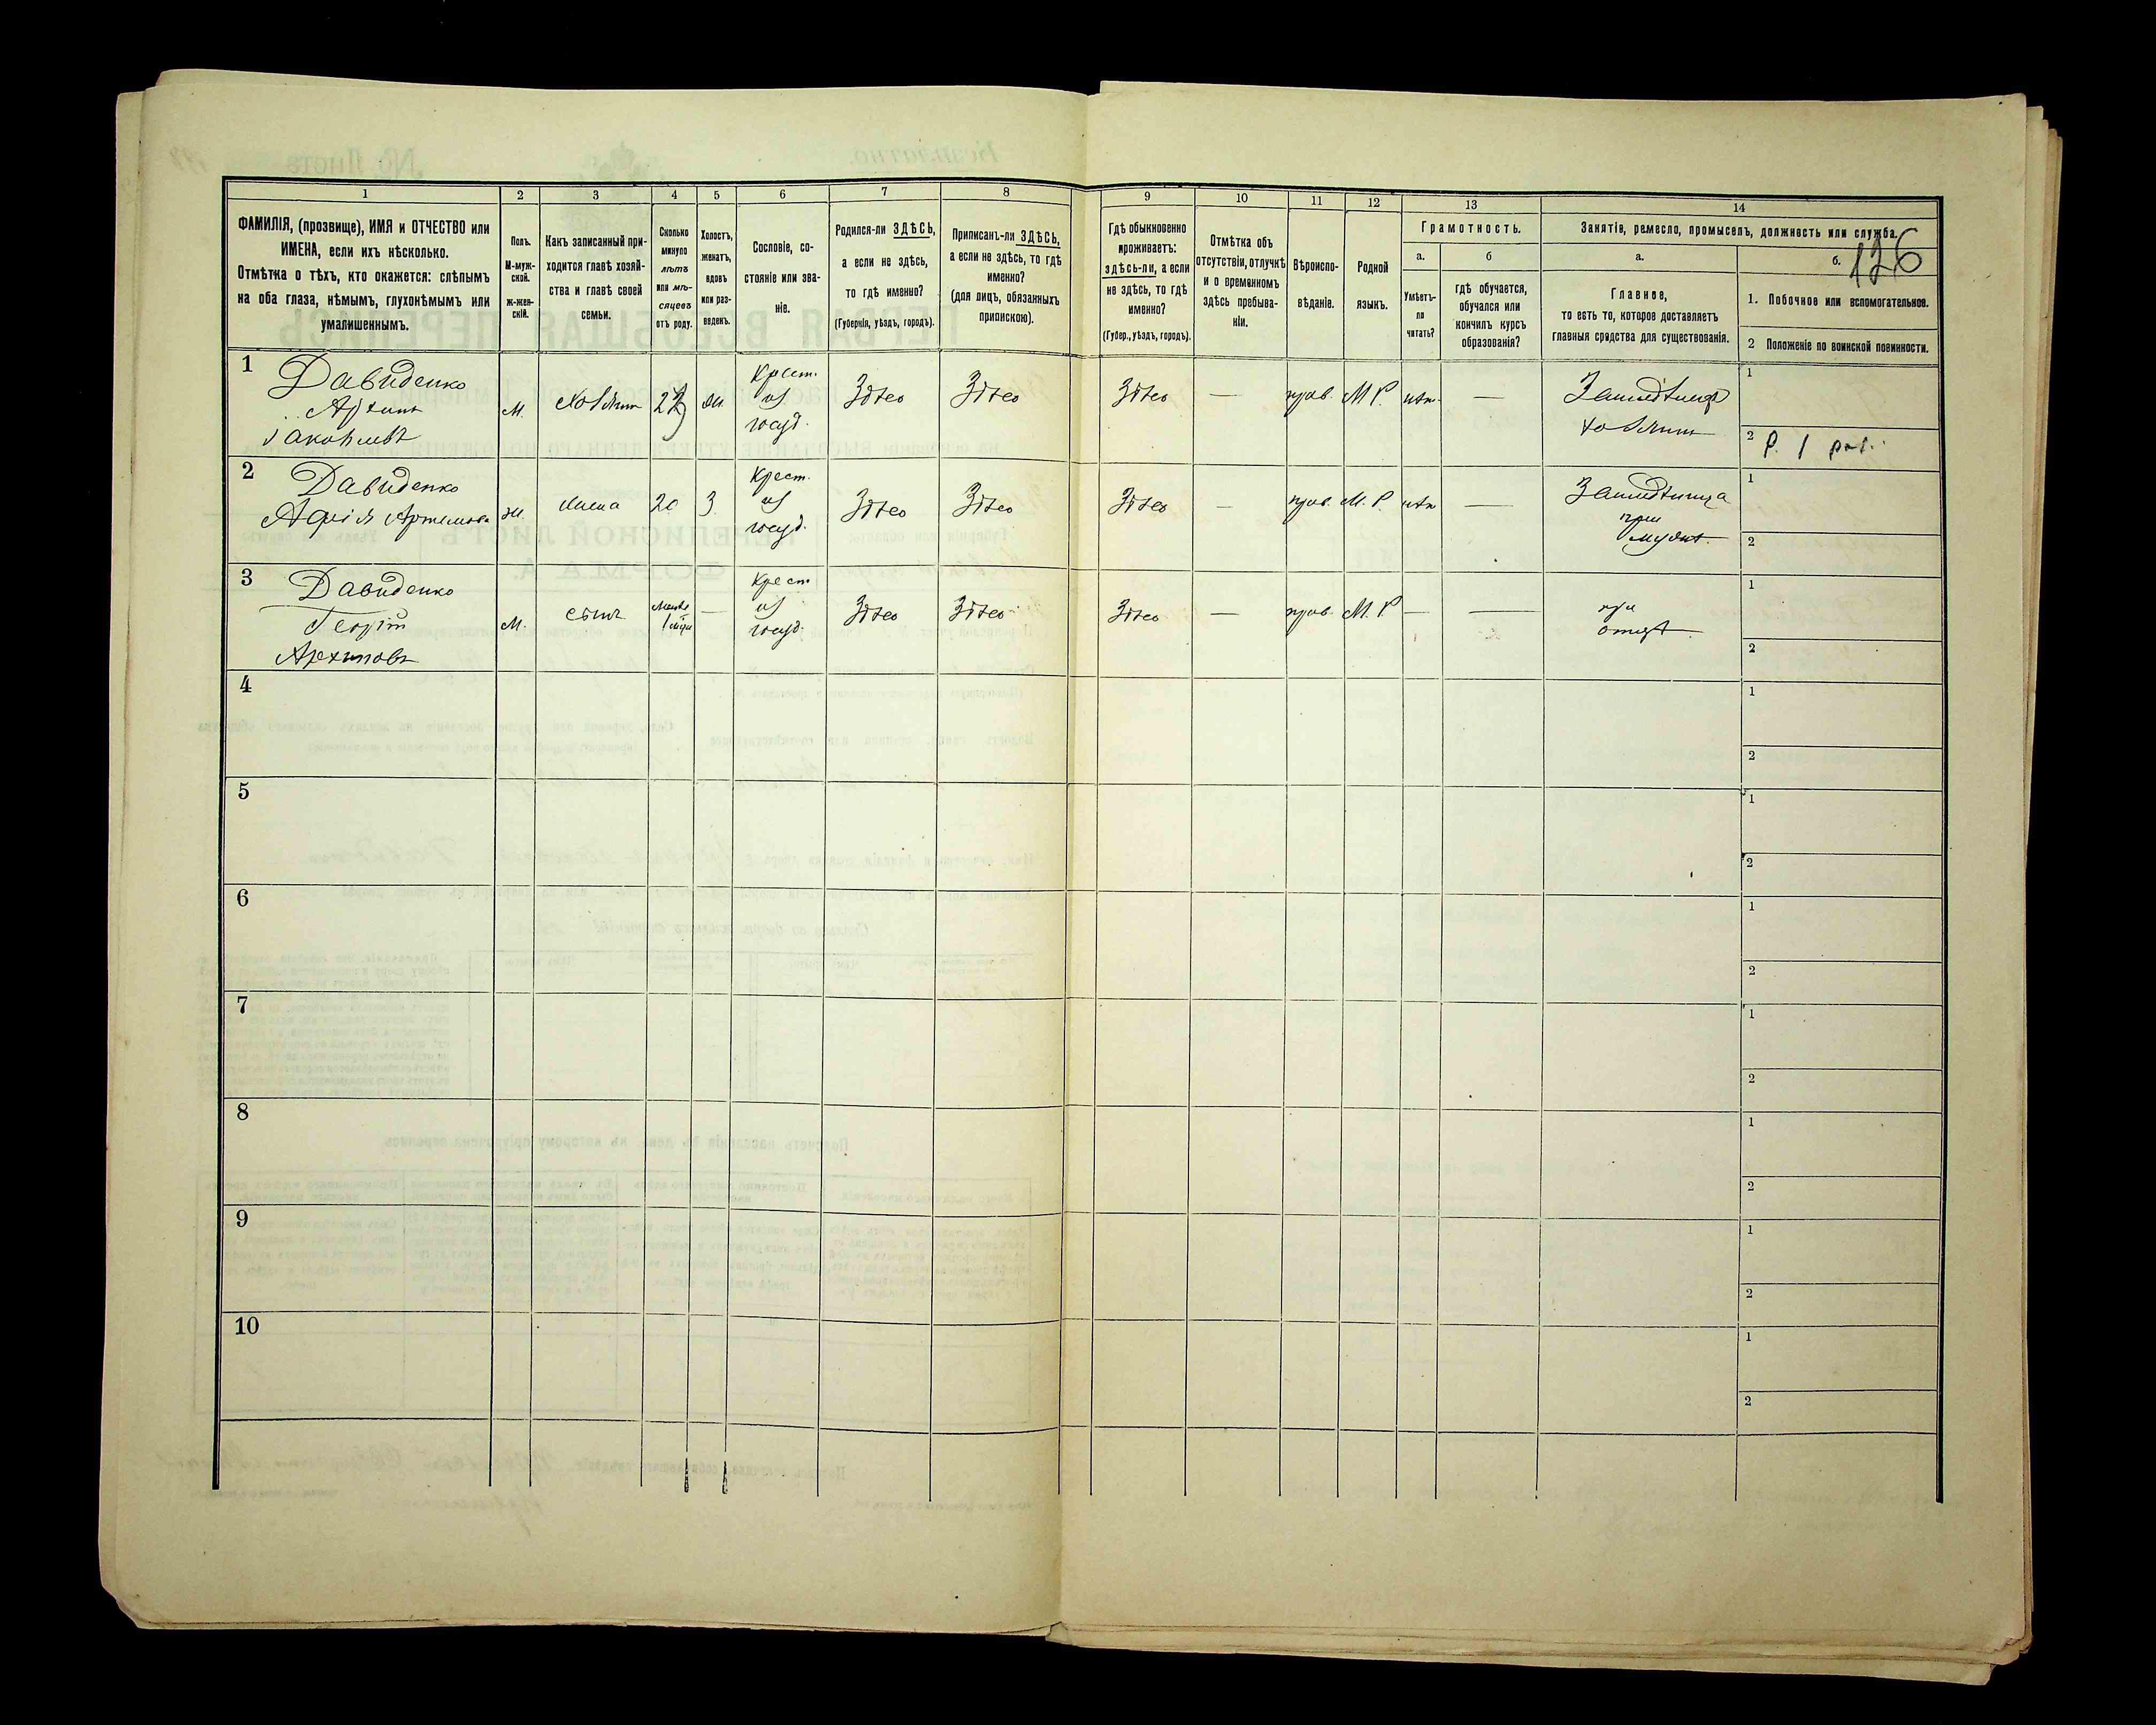 126
1 2 3 4 5 6 7 8 9 10 11 12 13 14
ФАМИЛІЯ, (прозвище), ИМЯ и ОТЧЕСТВО или
ИМЕНА, если ихъ нѣсколько.
Отмѣтка о тѣхъ, кто окажется: слѣпымъ
на оба глаза, нѣмымъ, глухонѣмымъ или
умалишеннымъ.
Полъ.
М-муж-
ской.
ж-жен-
скій.
Какъ записанный при-
ходится главѣ хозяй-
ства и главѣ своей
семьи.
Сколько
минуло
лѣтъ
или мѣ-
сяцевъ
отъ роду.
Холостъ,
женатъ,
вдовъ
или раз-
веденъ.
Сословіе, со-
стояніе или зва-
ніе.
Родился-ли ЗДѢСЬ,
а если не здѣсь,
то гдѣ именно?
(Губернія, уѣздъ, городъ).
Приписанъ-ли ЗДѢСЬ,
а если не здѣсь, то гдѣ
именно?
(для лицъ, обязанныхъ
припискою).
Гдѣ обыкновенно
проживаетъ:
здѣсь-ли, а если
не здѣсь, то гдѣ
именно?
(Губер., уѣздъ, городъ).
Отмѣтка объ
отсутствіи, отлучкѣ
и о временномъ
здѣсь пребыва-
ніи.
Вѣроиспо-
вѣданіе.
Родной
языкъ.
Грамотность.
а.
Умѣетъ-
ли
читать?
б
гдѣ обучается,
обучался или
кончилъ курсъ
образованія?
Занятіе, ремесло, промыселъ, должность или служба.
а.
Главное,
то есть то, которое доставляетъ
главныя средства для существованія.
б.
1. Побочное или вспомогательное.
2 Положеніе по воинской повинности.
1
Давиденко
Архипъ
Іаковлевъ
М.
хозяин
ж.
Крест.
из
госуд.
Здѣсь
Здѣсь
Здѣсь
—
прав.
М Р.
нѣт
—
хозяин
1
2
2
Давиденко
Артемова
ж.
жена
20
З.
Крест.
из
госуд.
Здѣсь
Здѣсь
Здѣсь
—
прав.
М. Р.
нѣт
—
при
мужѣ.
1
2
3
Давиденко
Георгій
Архиповъ
М.
сынъ
—
Крест
из
госуд.
Здѣсь
Здѣсь
Здѣсь
—
прав.
М. Р
—
—
при
отцѣ
1
2
4
1
2
5
1
2
6
1
2
7
1
2
8
1
2
9
1
2
10
1
2